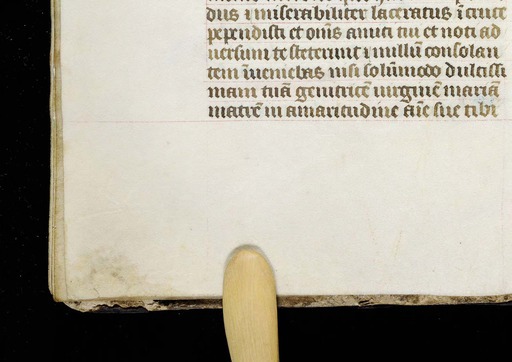 dus ⁊ miserabiliter laceratus ī cruce
pependisti et om̄s amici tui et noti ad
uersum te steterunt ⁊ nullū consolan
tem īueniebas nisi solūmodo dulcissi
mam tuā genitricē uirginē mariā
matrē in amaritudine aīe sue tibi